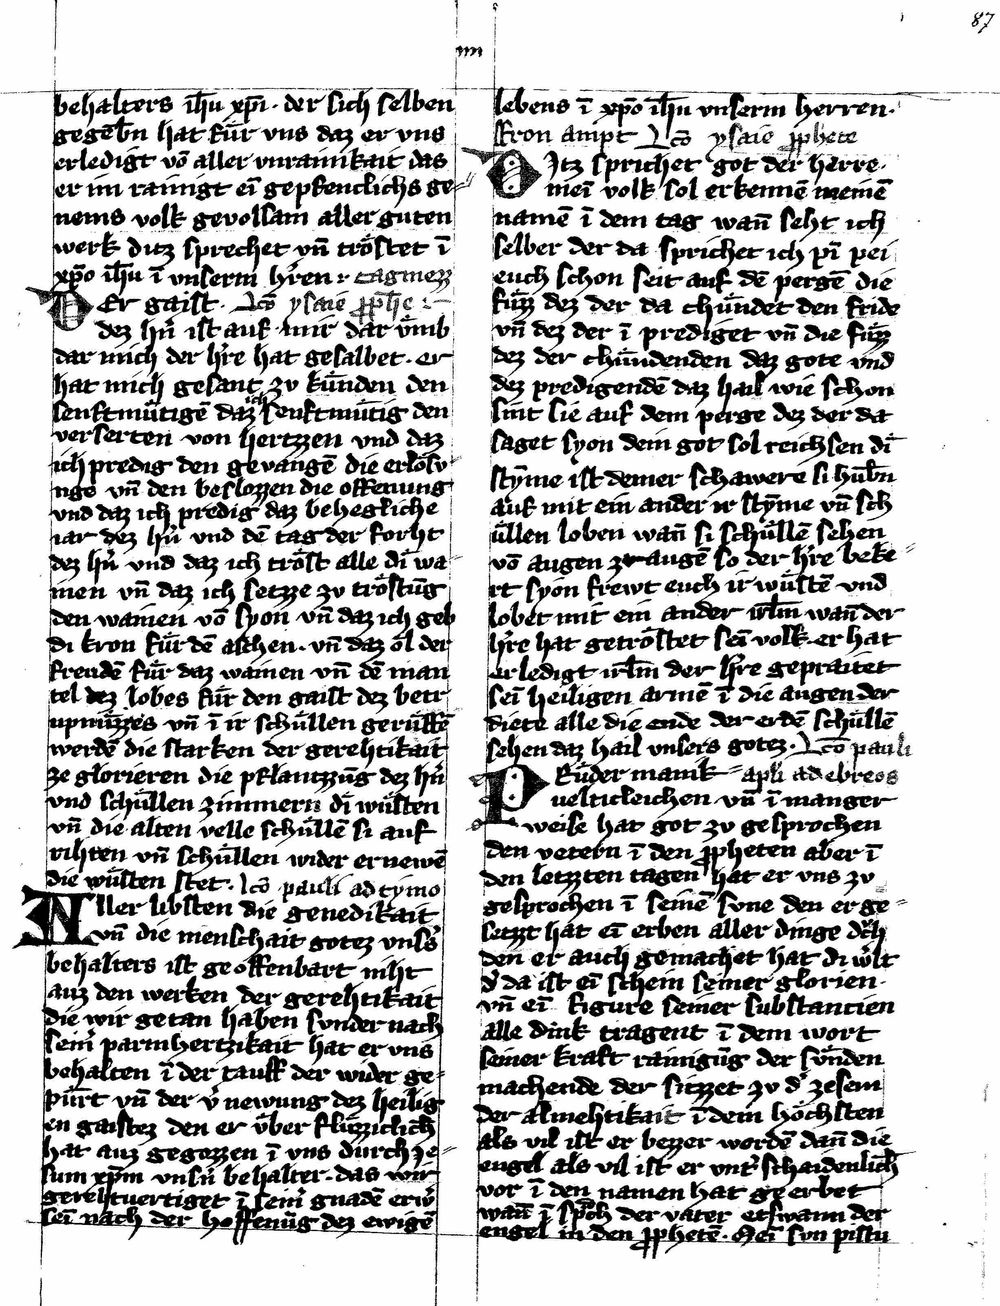 87
behalters ih̄u xp̄i · der sich selben
gegebn̄ hat fu̍r vns daz er vns
erledigt vō aller vnrainikait das
er im rainigt eī gepfenclichs ge
nems volk gevolsam aller guten
werk ditz sprechet vn̄ trőstet ī
xp̄o ih̄u ī vnserm hr̄en · tagmezz
Er gaist · Lc̄o ysaie p̄phe
dez hr̄n ist auf mir dar v̈mb
dar mich der hr̄e hat gesalbet · er
hat mich gesant zv ku̍nden den
senftmu̍tigē daz ich senftmu̍tig den
verserten von hertzzen vnd daz
ich predig den gevangē die erlősv
nge vn̄ den beslozzen die offenung
vnd daz ich predig daz behegliche
iar dez hr̄n vnd dē tag der forht
dez hr̄n vnd daz ich trőst alle di wa
inen vn̄ daz ich setzze zv trőstūg
den wainen vō syon vn̄ daz ich geb
di kron fu̍r dē aschen · vn̄ daz ől der
freudē fu̍r daz wainen vn̄ dē man
tel dez lobes fu̍r den gaist dez betr
upnu̍zzes vn̄ ī ir schu̍llen geru̍ffē
werdē die starken der gerehtikait
ze glorieren die pflantzzūg dez hr̄n
vnd schu̍llen zimmern di wu̍sten
vn̄ die alten velle schu̍llē si auf
rihten vn̄ schu̍llen wider ernewē
die wu̍sten stet · Lc̄o pauli ad tymo
Aller libsten die genedikait
vn̄ die menschait gotez vnsers
behalters ist geoffenbart niht
auz den werken der gerehtikait
die wir getan haben svnder nach
seinr parmhertzikait hat er vns
behalten ī der tauff der wider ge
pu̍rt vn̄ der vernewung dez heilig
en gaistez den er v̈ber flu̍zziclich
hat auz gegozzen ī vns durch Je
sum xp̄m vnsern behalter · das wir
gerehtvertiget ī seinr gnadē erw
sein nach der hoffenūg dez ewigē
lebens ī xp̄o ih̄u vnserm herren ·
Fron ampt Lc̄o ysaie p̄phete
Ditz sprichet got der herre ·
mein volk sol erkennē meinē
namē ī dem tag wan̄ seht ich
selber der da sprichet ich pī pei
euch schon seit auf dē pergē die
fu̍zz dez der da chu̍ndet den fride
vn̄ dez der ī prediget vn̄ die fu̍zz
dez der chu̍ndenden daz gote vnd
dez predigendē daz hail wie schon
sint sie auf dem perge dez der da
saget syon dein got sol reichsen di
stȳme ist deiner schawere si hu̍bn̄
auf mit ein ander ir stȳme vn̄ sch
u̍llen loben wan̄ si schu̍llē sehen
vō augen ze augē so der hr̄e beke
rt syon frewt euch ir wu̍stē vnd
lobet mit ein ander irl̄m wan̄ der
hr̄e hat getrőstet sei volk · er hat
erledigt irl̄m der hr̄e gepraitet
sei heiligen armē ī die augen der
diete alle die ende der erdē schu̍llē
sehen daz hail vnsers gotez · Lc̄o pauli
apl̄i ad ebreos
Pru̍der manik
uelticleichen vn̄ ī manger
weise hat got zv gesprochen
den vetern ī den p̄pheten aber ī
den letzten tagen hat er vns zv
gesprochen ī seinē svne den er ge
setzt hat eī erben aller dinge dch
den er auch gemachet hat di werlt
d' da ist eī schein seiner glorien ·
vn̄ eī figure seiner substancien
alle dink tragent ī dem wort
seiner kraft rainigūg der su̍nden
machende der sitzzet zv d' zesem
der almehtikait ī dem hőchsten
als vil ist er bezzer wordē dan̄ die
engel als vil ist er vnt' schaidenlich
vor ī den namen hat geerbet
wan̄ ī sproch der vater etswann der
engel in den p̄phetē · Mei svn pistu